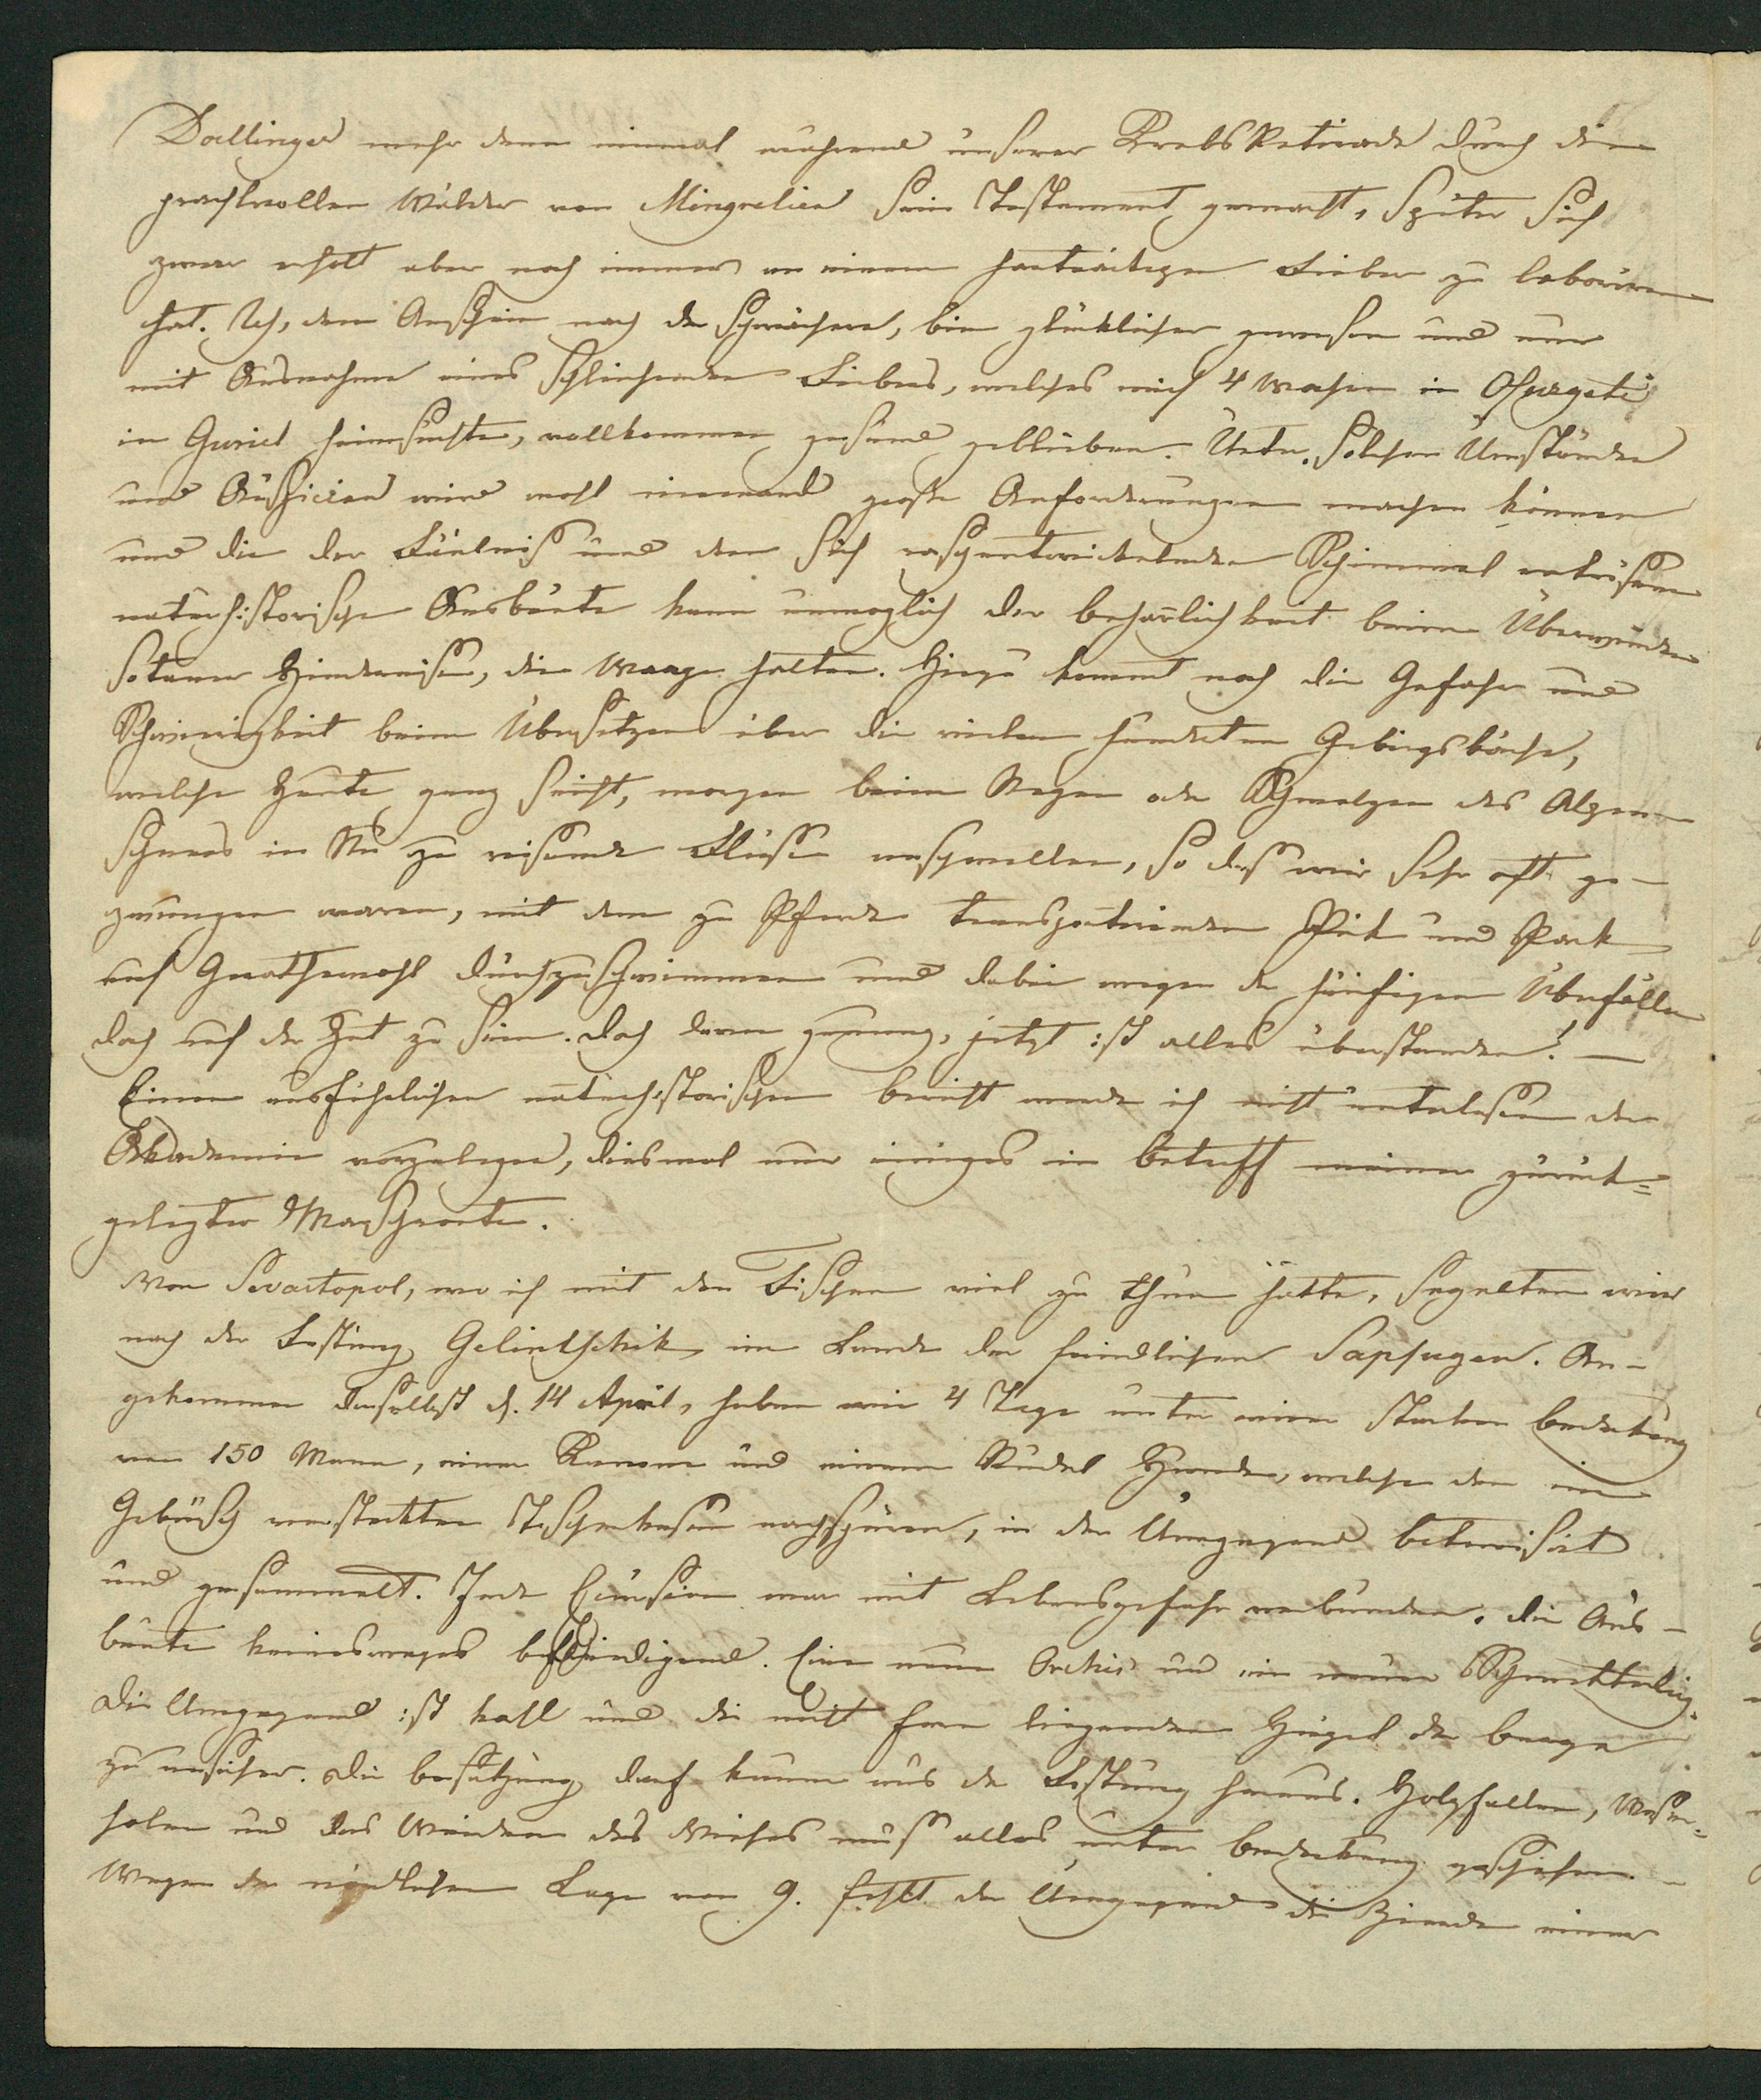 Doellinger mehr denn einmal während unserer Krebs Retirade durch die
prachtvollen Wälder von Mingrelien sein Testament gemacht, später sich
zwar erholt aber noch immer an einem hartnäckigen Fieber zu laboriren
hat. Ich, dem Anschein nach der Schwächere, bin glücklicher gewesen und nur
mit Ausnahme eines schleichenden Fiebers, welches mich 4 Wochen in Osurgeti
in Guriel heimsuchte, vollkommen gesund geblieben. Unter solchen Umständen
und Auspicien wird wohl niemand große Anforderungen machen können
und die der Fäulniß und dem sich raschentwickelnden Schimmel entrissene
naturhistorische Ausbeute kann unmoglich der beharrlichkeit beim Überwinden
sotaner Hindernisse, die Waage halten. Hiezu kommt noch die Gefahr und
Schwierigkeit beim Übersetzen über die vielen hunderten Gebirgsbäche,
welche Heute ganz seicht, morgen beim Regen oder Schmelzen des Alpen
schnees im Nu zu reisende Flüsse anschwellen, so daß wir sehr oft ge-
zwungen waren, mit dem zu Pferde transportirenden Pik und Pack
auf Gerathewohl durchzuschwimmen und dabei wegen der häufigen Überfälle
doch auf der Hut zu sein. doch davon genung, jetzt ist alles überstanden! —
Einen ausführlichen naturhistorischen bericht werde ich nicht unterlassen der
Akademie vorzulegen, diesmal nur einiges in betreff meiner zurück=
gelegter Marschroute.
Von Sevastopol, wo ich mit den Fischen viel zu thun hatte, segelten wir
nach der Festung Gelintschik, im Lande der feindlichen Sapsugen. An-
gekommen daselbst d. 14 April, haben wir 4 Tage unter einer starken bedekung
von 150 Mann, einer Kanone und einem Rudel Hunde, welche den im
Gebüsch versteckten Tscherkessen nachspüren, in der Umgegend botanisirt
und gesammelt. Jede Excursion war mit Lebensgefahr verbunden, die Aus-
beute keinesweges befriedigend. Eine neue Orchis und ein neuer Schmetterling.
Die Umgegend ist kahl und die nicht fern liegenden Hügel der berge
zu unsicher. Die besatzung darf kaum aus der Festung heraus. Holzfällen, Wasser=
holen und das Weiden des Viehes muß alles unter bedekung geschehen. -
Wegen der nördlichen Lage von G. fehlt der Umgegend die Zierde einer